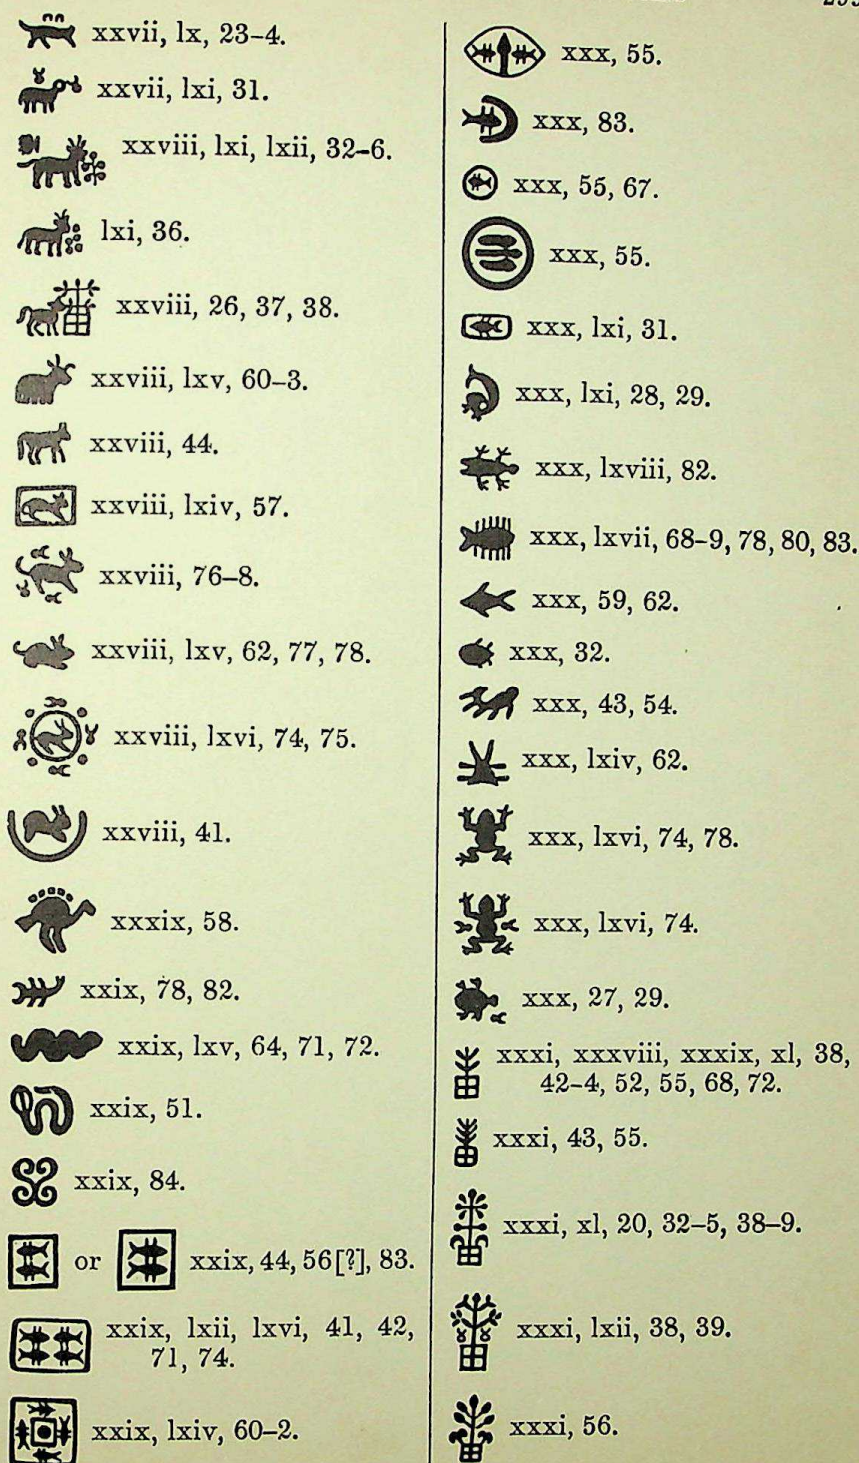 xxvii, lx, 23–4.
xxvii, lxi, 31.
xxviii, lxi, lxii, 32–6.
lxi, 36.
xxviii, 26, 37, 38.
xxviii, lxv, 60–3.
xxviii, 44.
xxviii, lxiv, 57.
xxviii, 76–8.
xxviii, lxv, 62, 77, 78.
xxviii, lxvi, 74, 75.
xxviii, 41.
xxxix, 58.
xxix, 78, 82.
xxix, lxv, 64, 71, 72.
xxix, 51.
xxix, 84.
or xxix, 44, 56[?], 83.
xxix, lxii, lxvi, 41, 42,
71, 74.
xxix, lxiv, 60–2.
xxx, 55.
xxx, 83.
xxx, 55, 67.
xxx, 55.
xxx, lxi, 31.
xxx, lxi, 28, 29.
xxx, lxviii, 82.
xxx, lxvii, 68–9, 78, 80, 83.
xxx, 59, 62.
xxx, 32.
xxx, 43, 54.
xxx, lxiv, 62.
xxx, lxvi, 74, 78.
xxx, lxvi, 74.
xxx, 27, 29.
xxxi, xxxviii, xxxix, xl, 38,
42–4, 52, 55, 68, 72.
xxxi, 43, 55.
xxxi, xl, 20, 32–5, 38–9.
xxxi, lxii, 38, 39.
xxxi, 56.